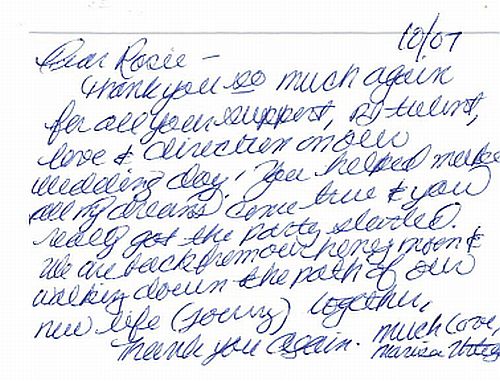 10/07
Dear Rosie -
Thank you so much again
for all your support, DJ talent,
love & direction on our
wedding day! You helped make
all my dreams come true & you
really got the party started.
We are back from our honeymoon &
walking down the path of our
new life (journey) together,
Thank you again. much love,
Marisa